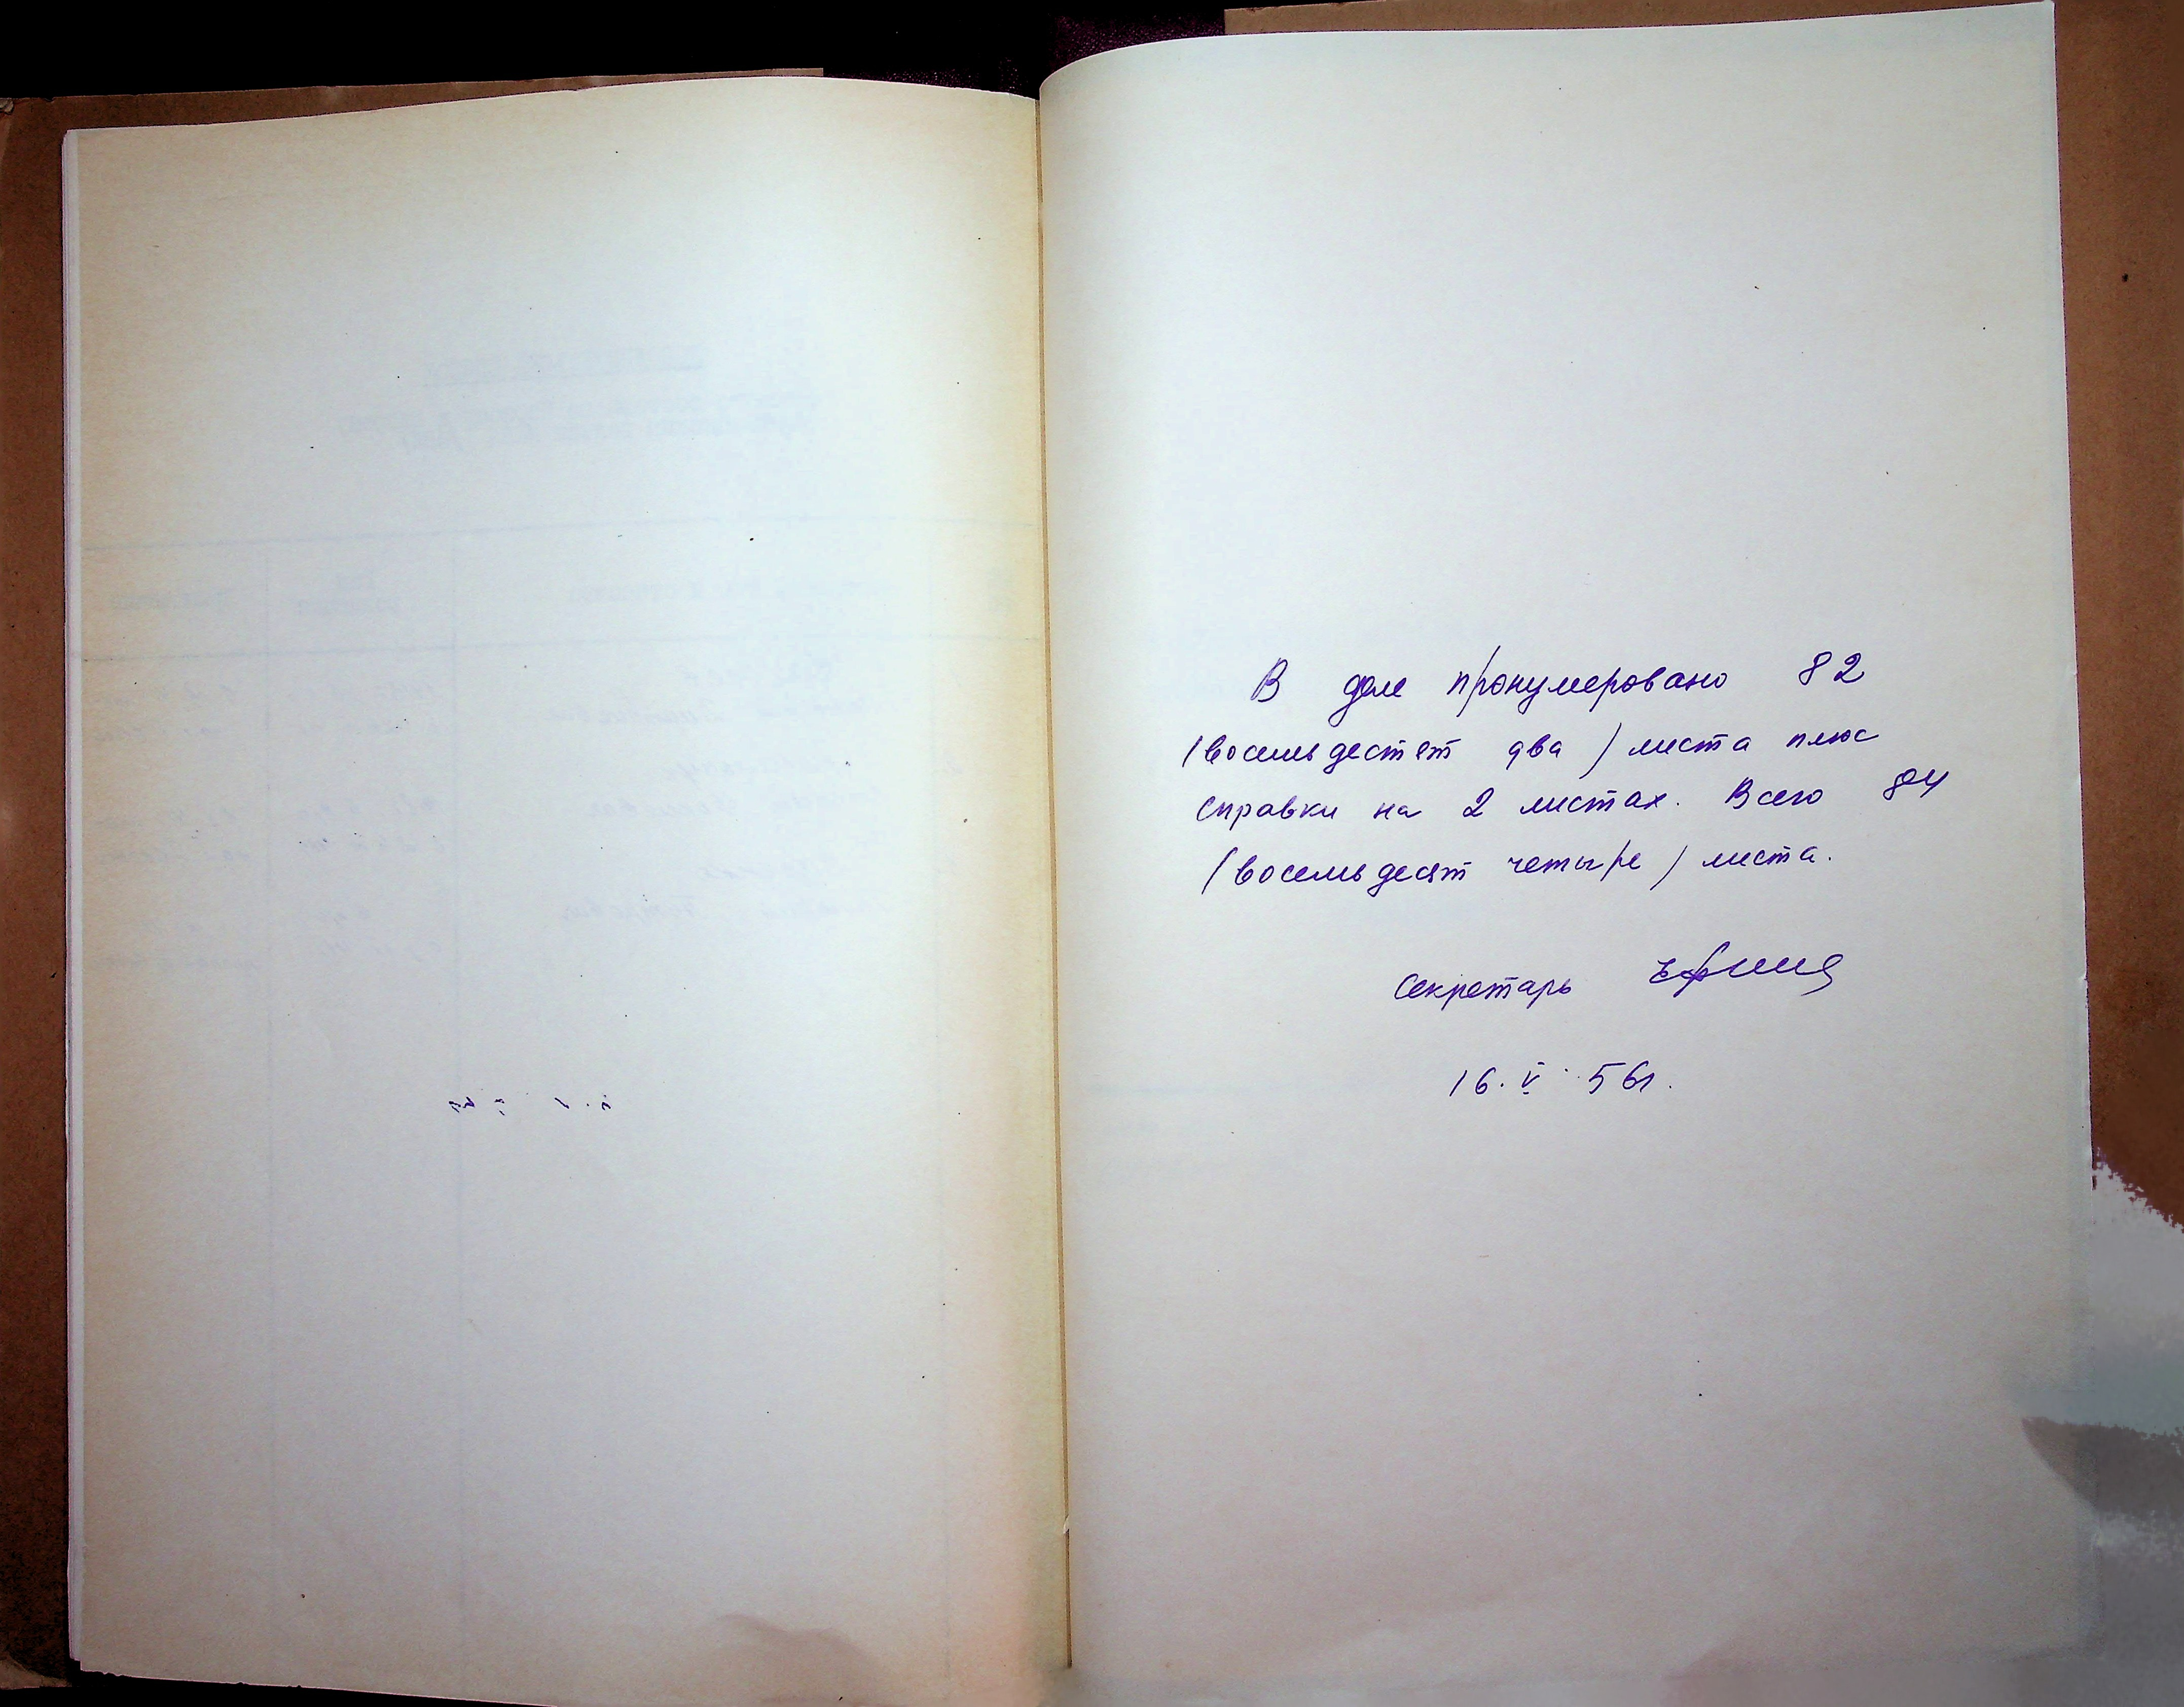 В деле пронумеровано 82
(восемьдестят два) листа плюс
справки на 2 листах. Всего 84
(восемьдесят четыре) листа.
Секретарь
16.V.56г.